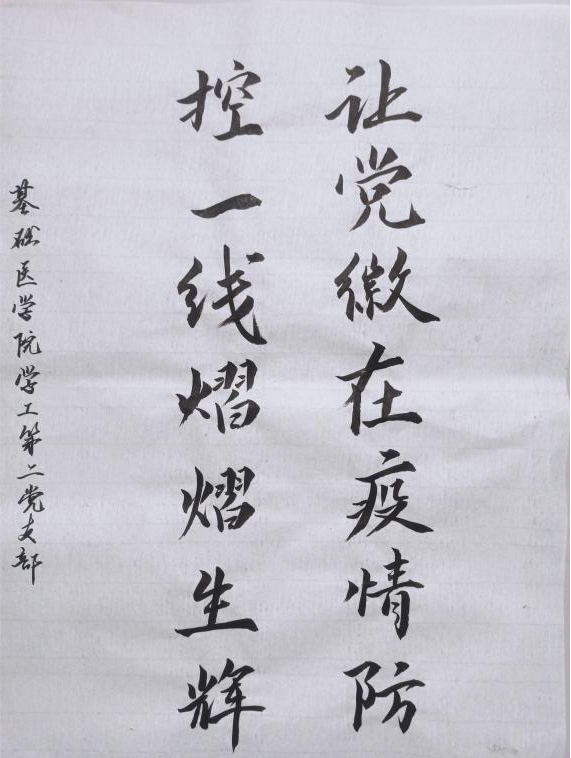 让党徽在疫情防
控一线熠熠生辉
基础医学院学工第二党支部